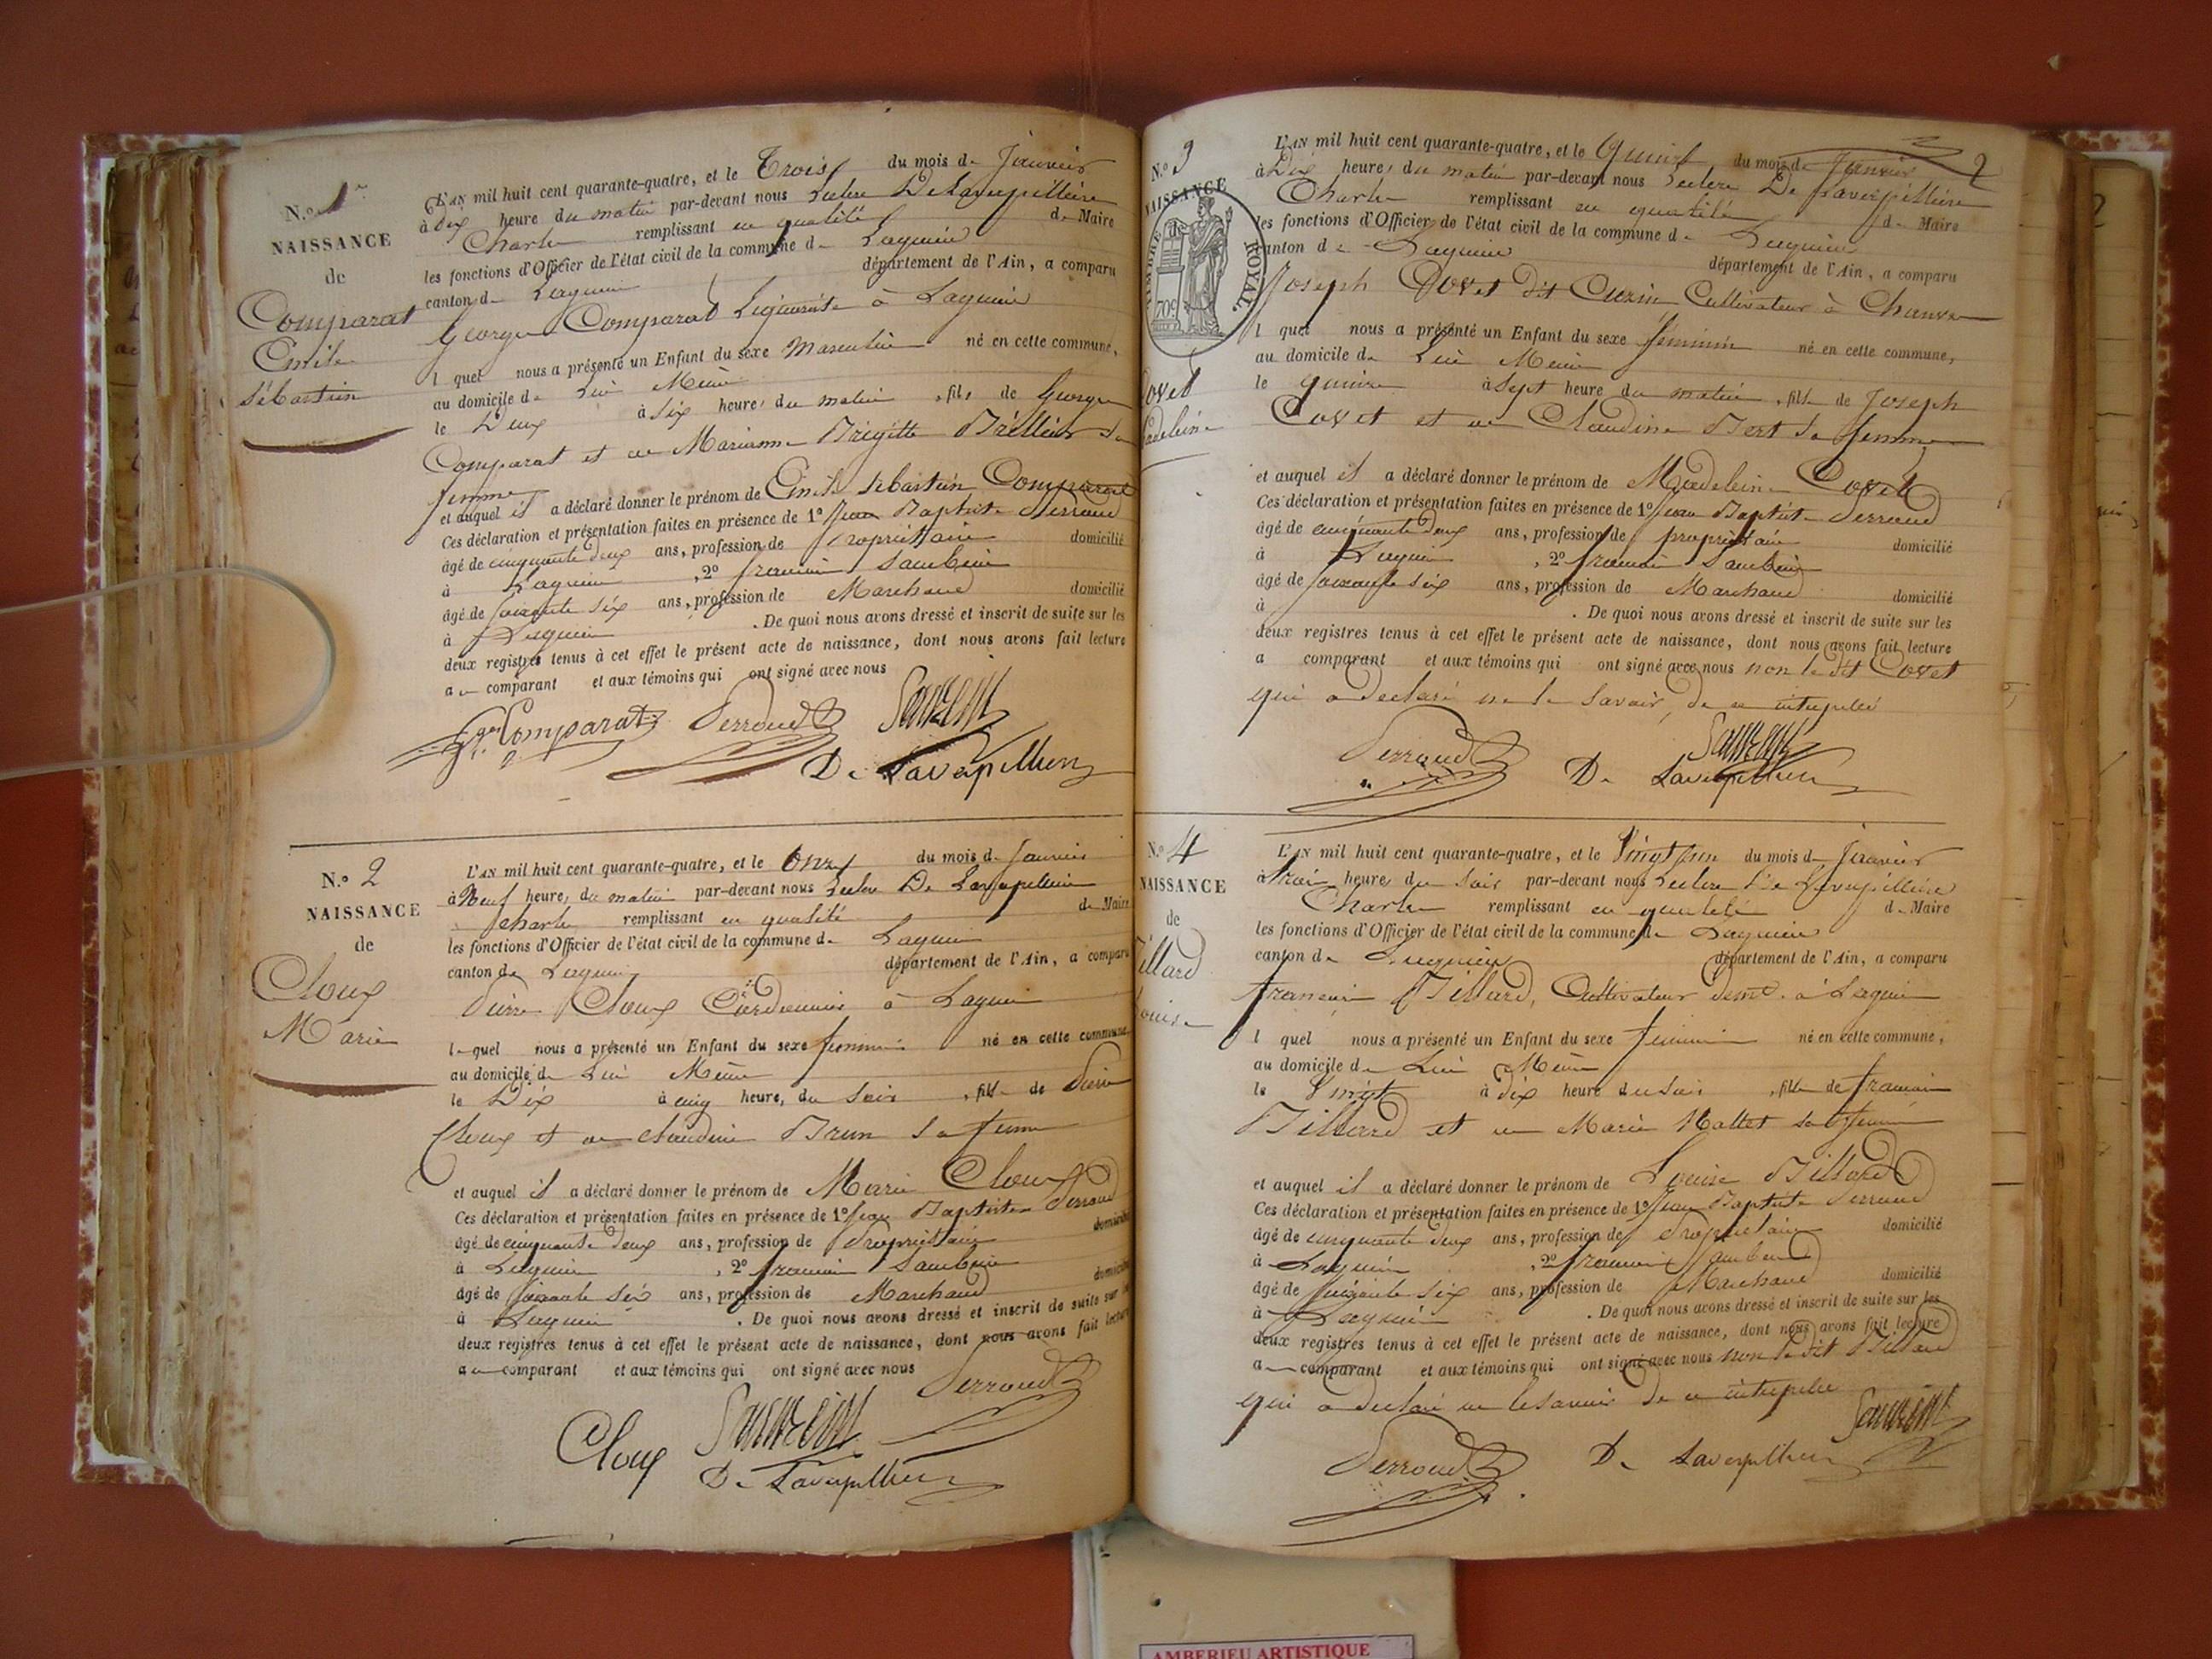 N.o 1er
NAISSANCE
de
Comparat
Emile
Sébastien
L'AN mil huit cent quarante-quatre, et le Trois du mois de Janvier
à dix heure du matin par-devant nous Leclerc De Laverpillière
Charles remplissant en qualité de Maire
les fonctions d'Officier de l'état civil de la commune de Lagnieu
canton de Lagnieu département de l'Ain, a comparu
George Comparat Liquoriste à Lagnieu
l quel nous a présenté un Enfant du sexe Masculin né en cette commune,
au domicile de Lui Même
le Deux à six heure, du matin , fils de George
Comparat et de Marianne Brigitte Brillier sa
femme
et auquel il a déclaré donner le prénom de Emile Sébastien Comparat
Ces déclaration et présentation faites en présence de 1o Jean Baptiste Perroud
âgé de cinquante deux ans, profession de Propriétaire domicilié
à Lagnieu , 2o françois
âgé de soixante six ans, profession de Marchand domicilié
à Lagnieu . De quoi nous avons dressé et inscrit de suite sur les
deux registres tenus à cet effet le présent acte de naissance, dont nous avons fait lecture
au comparant et aux témoins qui ont signé avec nous
Comparat Perroud
De Laverpillière
N.o 2
NAISSANCE
de
Cloux
Marie
L'AN mil huit cent quarante-quatre, et le Onze du mois de Janvier
à Neuf heure, du matin par-devant nous Leclerc De Laverpillière
Charles remplissant en qualité de Maire
les fonctions d'Officier de l'état civil de la commune de Lagnieu
canton de Lagnieu département de l'Ain, a comparu
Pierre Cloux Cordonnier à Lagnieu
le quel nous a présenté un Enfant du sexe féminin né en cette commune
au domicile de Lui Même
le Dix à cinq heure, du soir , fille de Pierre
Cloux et de Claudine Brun sa femme
et auquel il a déclaré donner le prénom de Marie Cloux
Ces déclaration et présentation faites en présence de 1o Jean Baptiste Perroud
âgé de cinquante deux ans, profession de Propriétaire domicilié
à Lagnieu , 2o françois
âgé de soixante six ans, profession de Marchand domicilié
à Lagnieu . De quoi nous avons dressé et inscrit de suite sur les
deux registres tenus à cet effet le présent acte de naissance, dont nous avons fait lecture
au comparant et aux témoins qui ont signé avec nous
Perroud
Cloux
De Laverpillière
2
N.o 3
NAISSANCE
TIMBRE ROYAL
70c
Covet
Madeleine
L'AN mil huit cent quarante-quatre, et le Quinze du mois de Janvier
à Dix heure, du matin par-devant nous Leclerc De Laverpillière
Charles remplissant en qualité de Maire
les fonctions d'Officier de l'état civil de la commune de Lagnieu
canton de Lagnieu département de l'Ain, a comparu
Joseph Covet dit Curin Cultivateur à
l quel nous a présenté un Enfant du sexe féminin né en cette commune,
au domicile de Lui Même
le quinze à sept heure du matin , fille de Joseph
Covet et de Claudine Bert sa femme
et auquel il a déclaré donner le prénom de Madeleine Covet
Ces déclaration et présentation faites en présence de 1o Jean Baptiste Perroud
âgé de cinquante deux ans, profession de propriétaire domicilié
à Lagnieu , 2o françois
âgé de soixante six ans, profession de Marchand domicilié
à . De quoi nous avons dressé et inscrit de suite sur les
deux registres tenus à cet effet le présent acte de naissance, dont nous avons fait lecture
a comparant et aux témoins qui ont signé avec nous non le dit Covet
qui a déclaré ne le savoir, de ce interpellé
Perroud
De Laverpillière
N.o 4
NAISSANCE
de
Billard
Louise
L'AN mil huit cent quarante-quatre, et le Vingt un du mois de Janvier
à trois heure, du soir par-devant nous Leclerc De Laverpillière
Charles remplissant en qualité de Maire
les fonctions d'Officier de l'état civil de la commune de Lagnieu
canton de Lagnieu département de l'Ain, a comparu
françois Billard, Cultivateur demt. à Lagnieu
l quel nous a présenté un Enfant du sexe féminin né en cette commune,
au domicile de Lui Même
le Vingt à dix heure du soir , fille de françois
Billard et de Marie Mallet sa femme
et auquel il a déclaré donner le prénom de Louise Billard
Ces déclaration et présentation faites en présence de 1o Jean Baptiste Perroud
âgé de cinquante deux ans, profession de Propriétaire domicilié
à Lagnieu , 2o françois
âgé de soixante six ans, profession de Marchand domicilié
à Lagnieu . De quoi nous avons dressé et inscrit de suite sur les
deux registres tenus à cet effet le présent acte de naissance, dont nous avons fait lecture
au comparant et aux témoins qui ont signé avec nous non le dit Billard
qui a déclaré ne le savoir de ce interpellé
Perroud De Laverpillière
AMBERIEU ARTISTIQUE